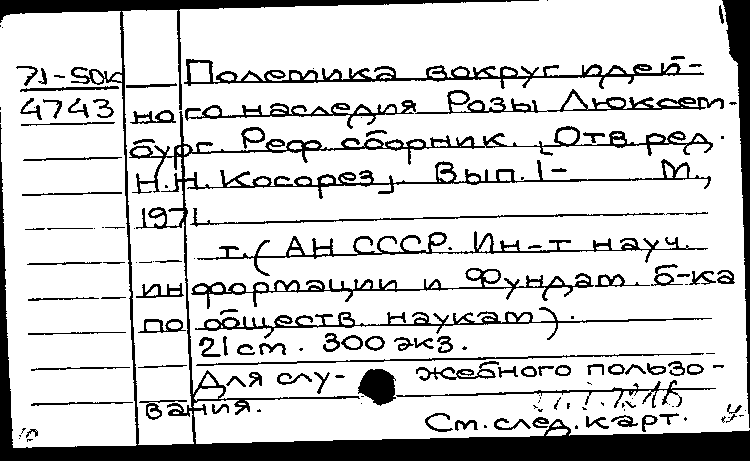 71-50к Полемика вокруг идей-
4743 ного наследия Розы Люксем-
бург. Реф. сборник. [Отв. ред.
Н.Н. Косорез]. Вып. 1- М.,
1971.
т. (АН СССР. Ин-т науч.
информации и Фундам. б-ка
по обществ. наукам).
21 см. 300 экз.
Для слу- жебного пользо-
вания.
См. след. карт.